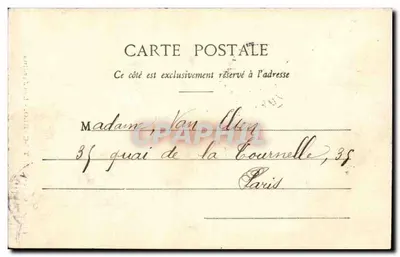 CARTE POSTALE
Ce côté est exclusivement réservé à l'adresse
Madame Van
35 quai de la Tournelle, 35
Paris
CPARAMA